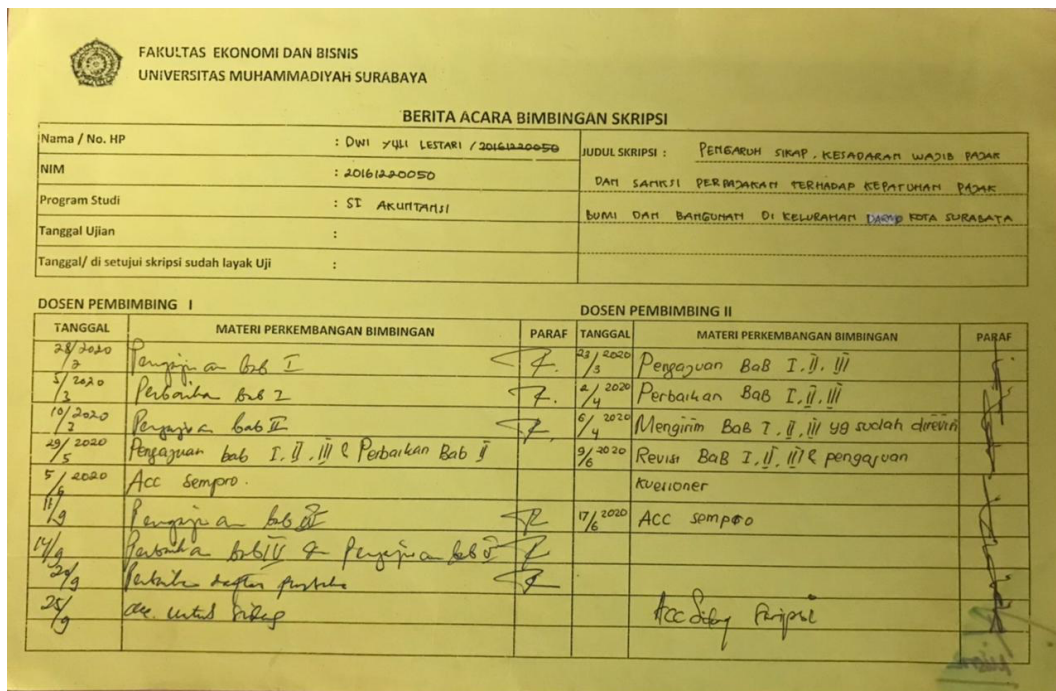 FAKULTAS EKONOMI DAN BISNIS
UNIVERSITAS MUHAMMADIYAH SURABAYA
BERITA ACARA BIMBINGAN SKRIPSI
Nama / No. HP : DWI YULI LESTARI / 20161220050
NIM : 20161220050
Program Studi : S1 AKUNTANSI
Tanggal Ujian :
Tanggal/ di setujui skripsi sudah layak Uji :
JUDUL SKRIPSI : PENGARUH SIKAP, KESADARAN WAJIB PAJAK
DAN SANKSI PERPAJAKAN TERHADAP KEPATUHAN PAJAK
BUMI DAN BANGUNAN DI KELURAHAN KOTA SURABAYA
DOSEN PEMBIMBING I
TANGGAL MATERI PERKEMBANGAN BIMBINGAN PARAF
28/2020 Pengajuan bab I
5/3 2020 Perbaikan bab I
10/2020 Pengajuan bab II
29/5 2020 Pengajuan bab I, II, III & Perbaikan Bab II
5/6 2020 Acc Sempro.
11/9 Pengajuan bab
14/9 Perbaikan bab IV & Pengajuan bab V
/9 Perbaikan daftar pustaka
25/9 acc. untuk sidang
DOSEN PEMBIMBING II
TANGGAL MATERI PERKEMBANGAN BIMBINGAN PARAF
23/3 2020 Pengajuan BaB I, II, III
2/4 2020 Perbaikan BaB I, II, III
6/4 2020 Mengirim BaB I, II, III yg sudah direvisi
9/6 2020 Revisi BaB I, II, III & pengajuan
kuesioner
17/6 2020 ACC sempro
Acc Sidang Skripsi